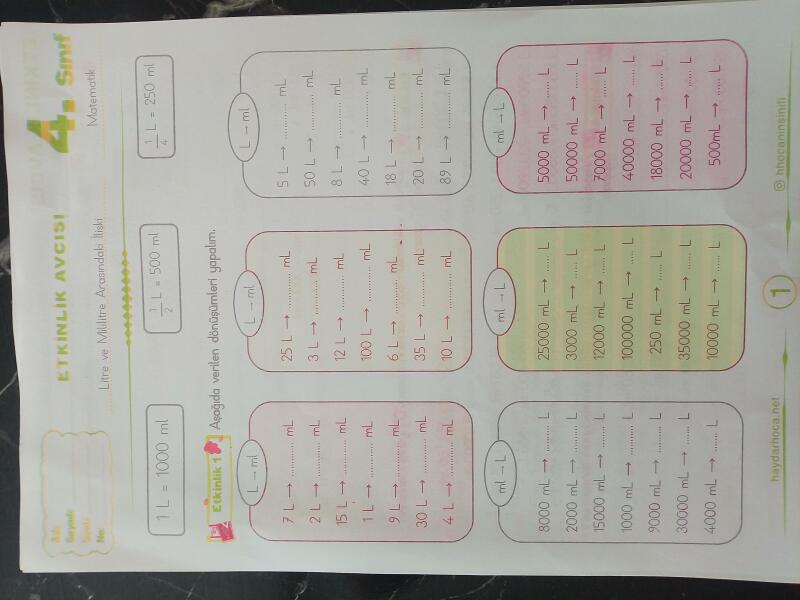 Adı:
Soyadı:
Sınıfı:
No:
ETKİNLİK AVCISI
Litre ve Mililitre Arasındaki İlişki
4. Sınıf
Matematik
1 L = 1000 ml
1/2 L = 500 ml
1/4 L = 250 ml
Etkinlik 1
Aşağıda verilen dönüşümleri yapalım.
L → ml
7 L → .......... mL
2 L → .......... mL
15 L → .......... mL
1 L → .......... mL
9 L → .......... mL
30 L → .......... mL
4 L → .......... mL
L → ml
25 L → .......... mL
3 L → .......... mL
12 L → .......... mL
100 L → .......... mL
6 L → .......... mL
35 L → .......... mL
10 L → .......... mL
L → ml
5 L → .......... mL
50 L → .......... mL
8 L → .......... mL
40 L → .......... mL
18 L → .......... mL
20 L → .......... mL
89 L → .......... mL
ml → L
8000 mL → .......... L
2000 mL → .......... L
15000 mL → .......... L
1000 mL → .......... L
9000 mL → .......... L
30000 mL → ...... L
4000 mL → ...... L
ml → L
25000 mL → ...... L
3000 mL → ...... L
12000 mL → ...... L
100000 mL → ...... L
250 mL → ...... L
35000 mL → ...... L
10000 mL → ...... L
ml → L
5000 mL → ...... L
50000 mL → ...... L
7000 mL → ...... L
40000 mL → ...... L
18000 mL → ...... L
20000 mL → ...... L
500mL → ...... L
haydarhoca.net
1
hhocaninsinifi